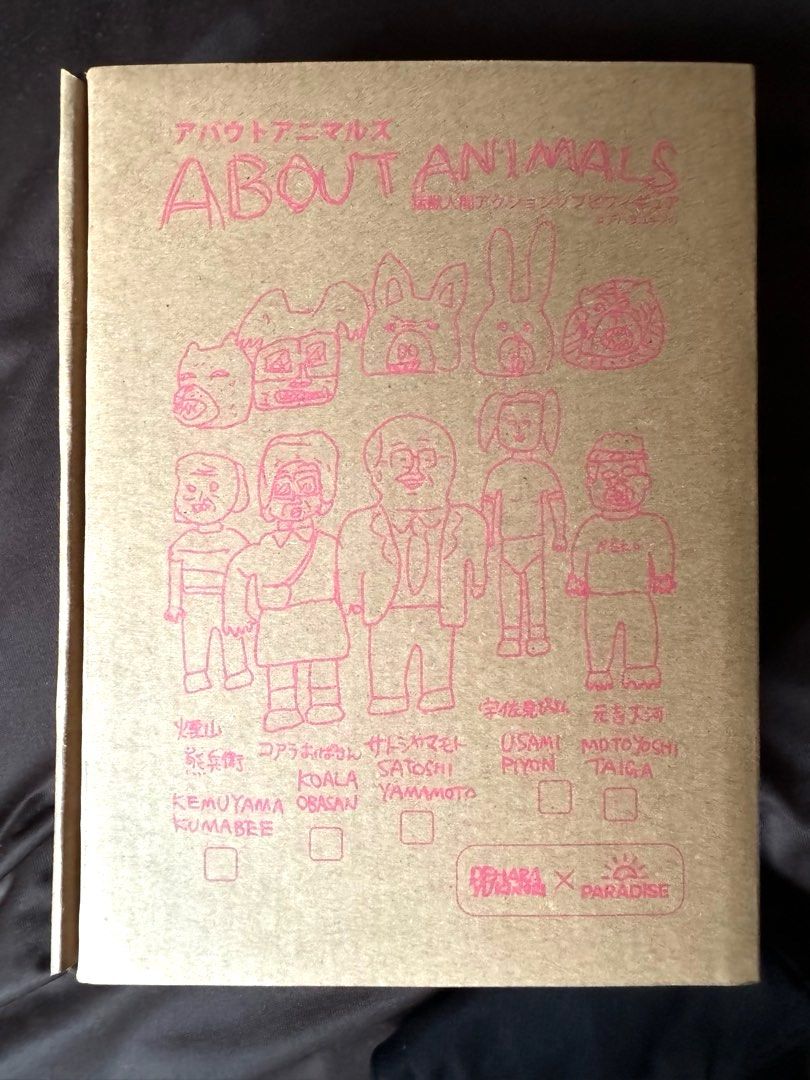 アバウトアニマルズ
ABOUT ANIMALS
人間アクションソフビフィギュア
煙山
熊兵衛
KEMUYAMA
KUMABEE
コアラおばさん
KOALA
OBASAN
サトシヤマモト
SATOSHI
YAMAMOTO
宇佐見ぴょん
USAMI
PIYON
元吉大河
MOTOYOSHI
TAIGA
DEHARA
YUKINORI
×
PARADISE